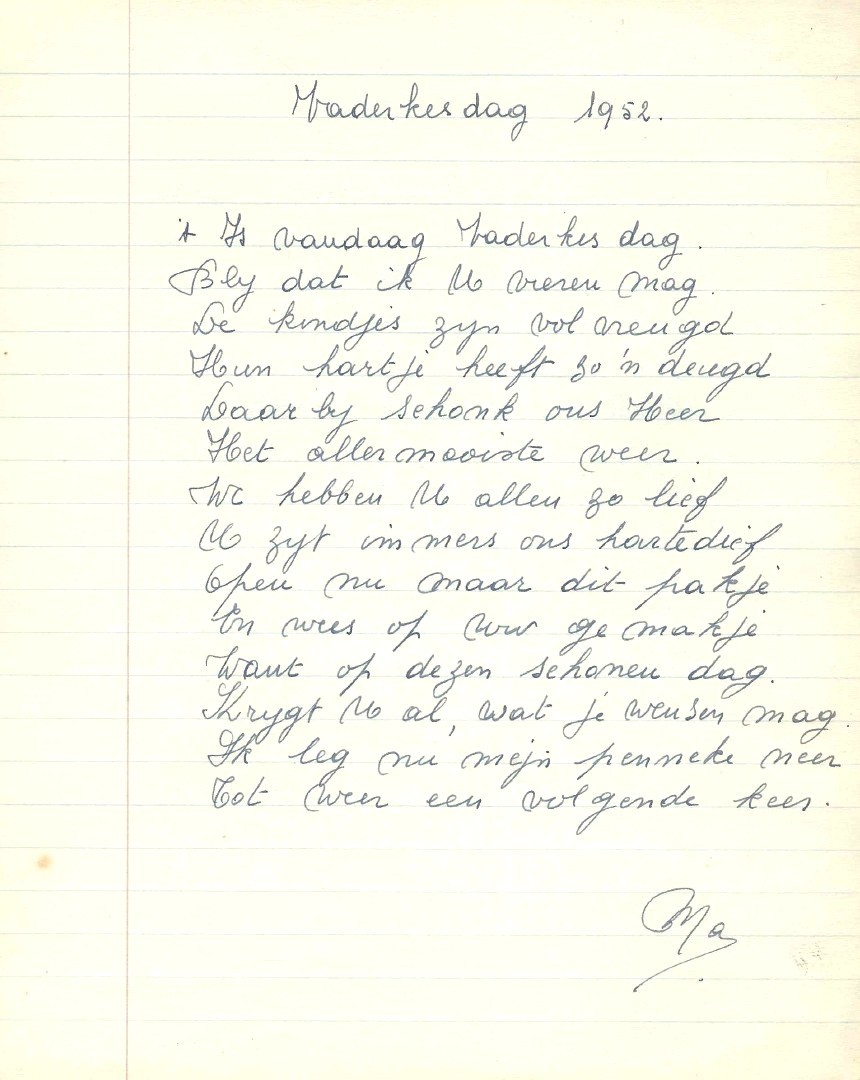 Vaderkesdag 1952.
't Is vandaag Vaderkesdag.
Bly dat ik U vieren mag.
De kindjes zyn vol vreugd
Hun hartje heeft zo'n deugd
Daarby schonk ons Heer
Het allermooiste weer.
We hebben U allen zo lief
U zyt immers ons hartedief
Open nu maar dit pakje
En wees op uw gemakje
Want op dezen schonen dag.
Krygt U al, wat je wensen mag.
Ik leg nu mijn penneke neer
Tot weer een volgende keer.
Ma